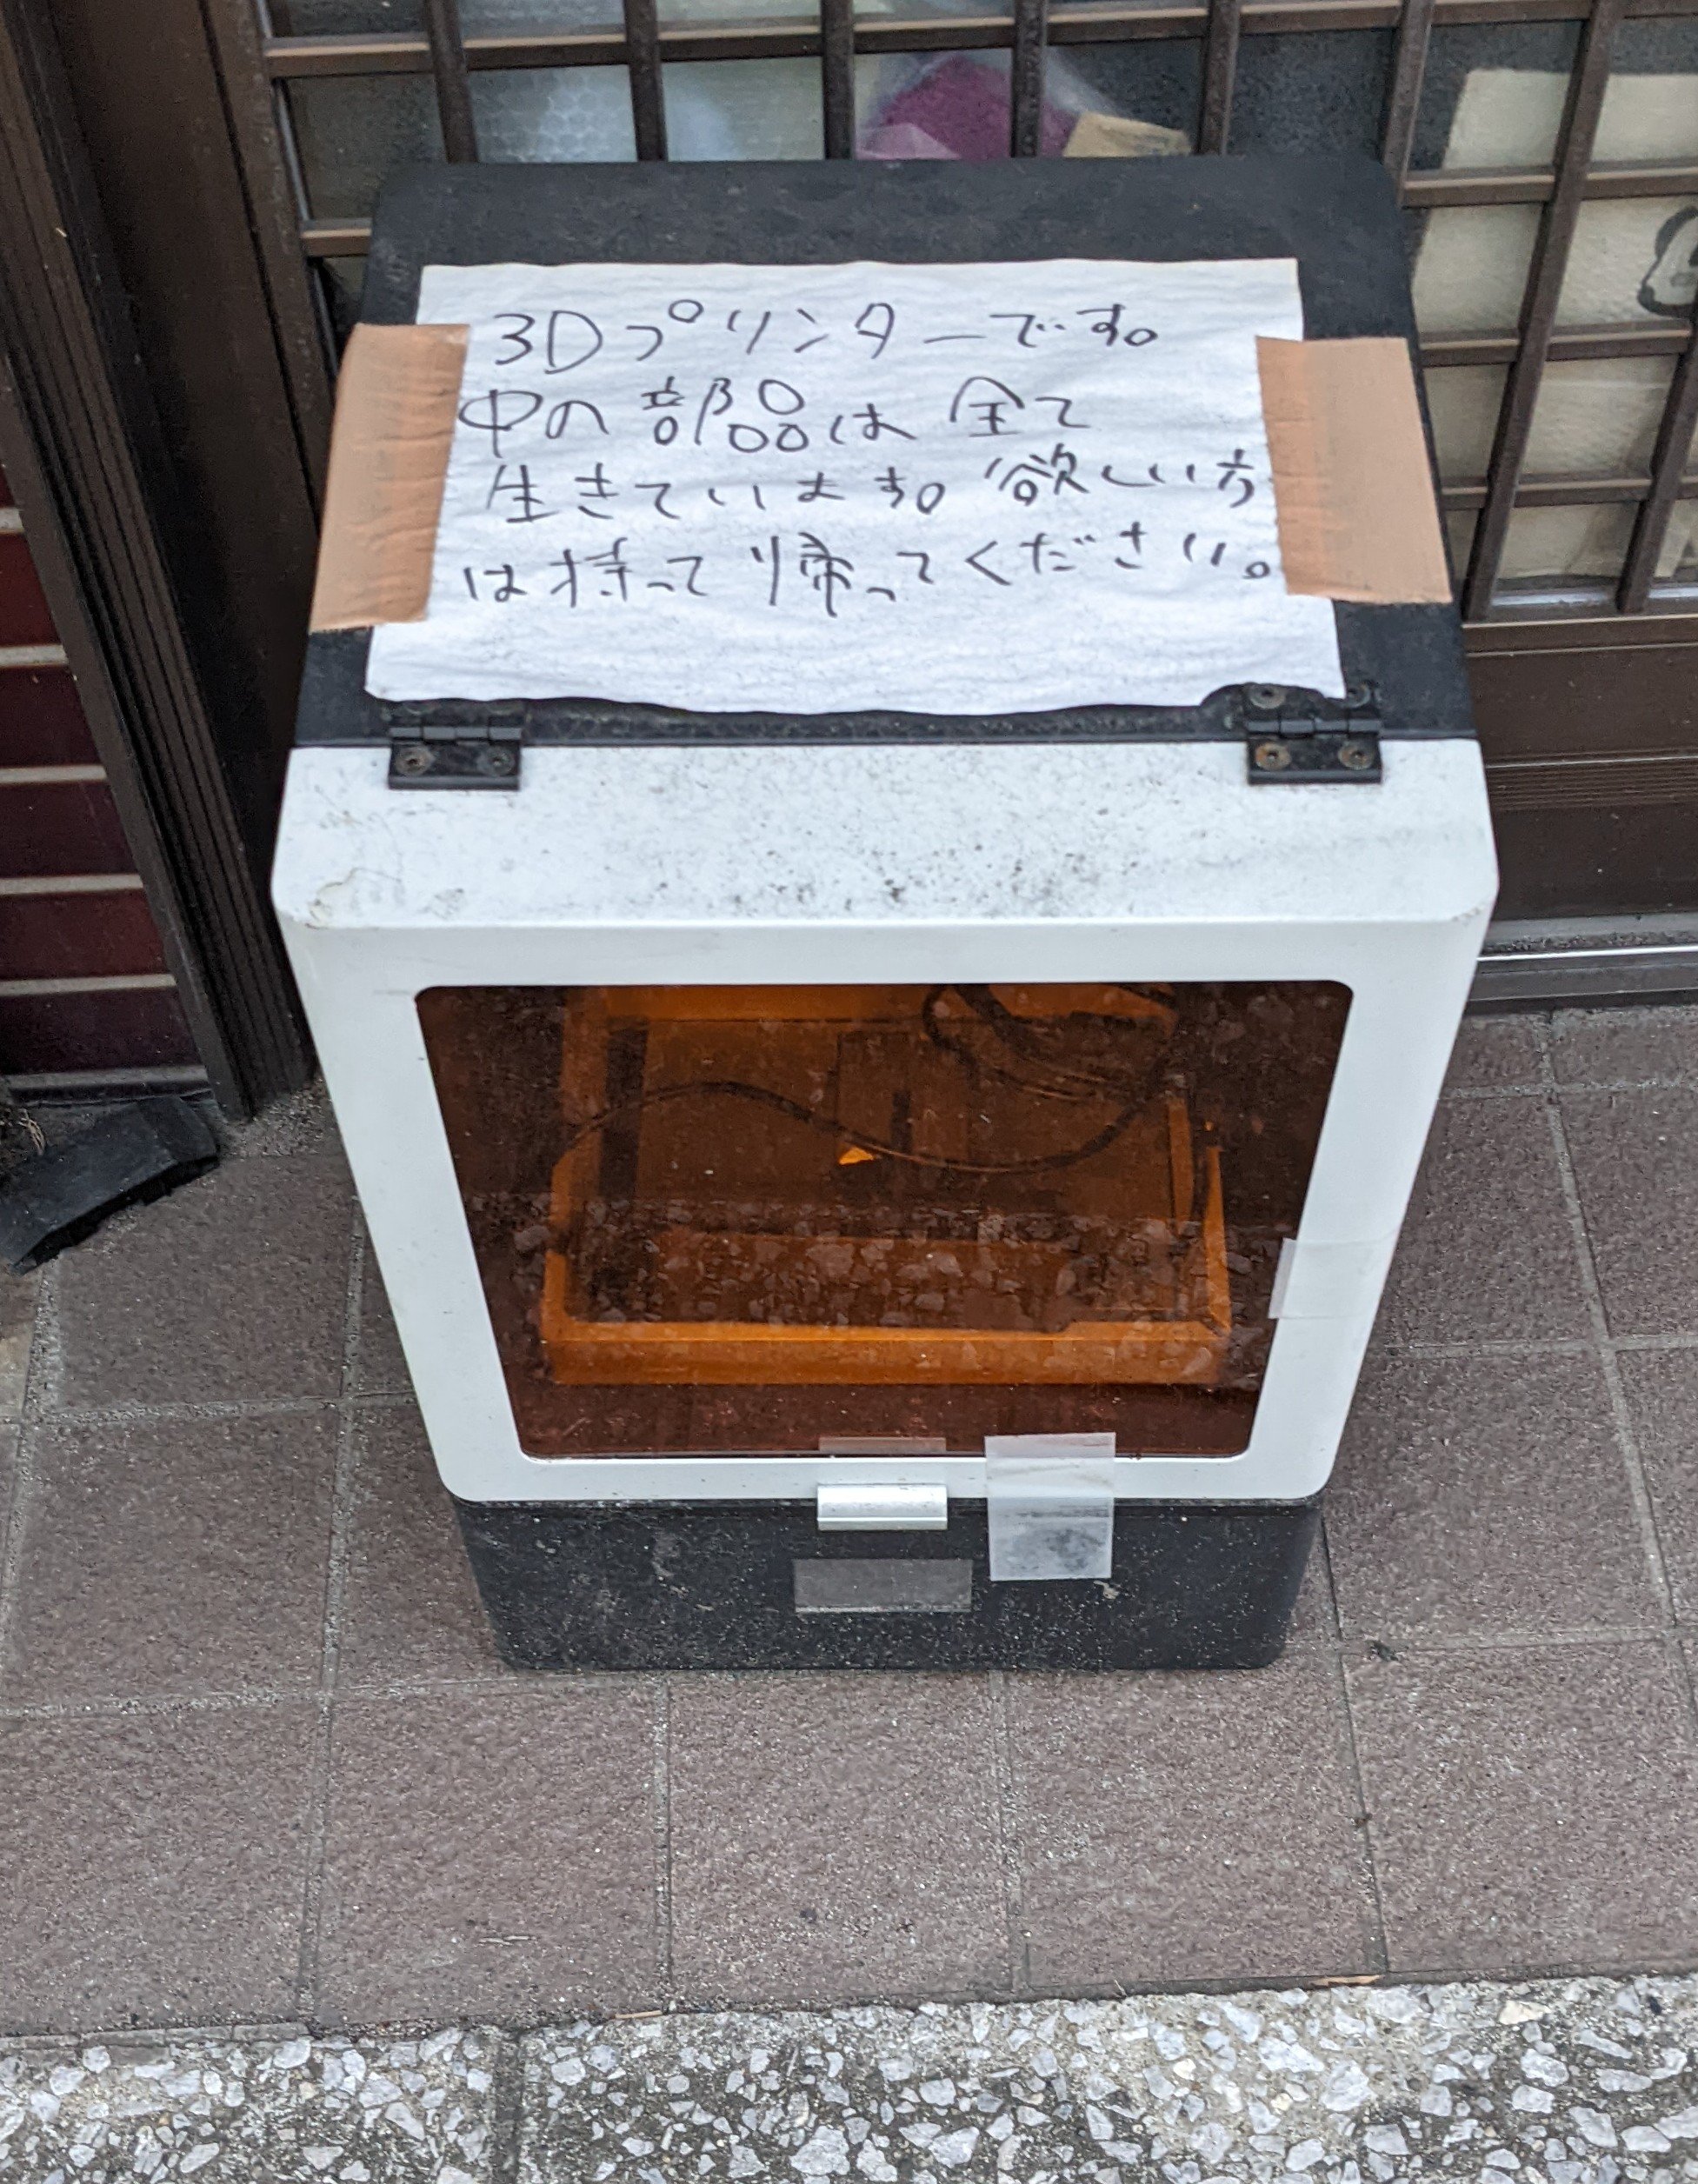 3Dプリンターです。
中の部品は全て
生きています。欲しい方
は持って帰ってください。